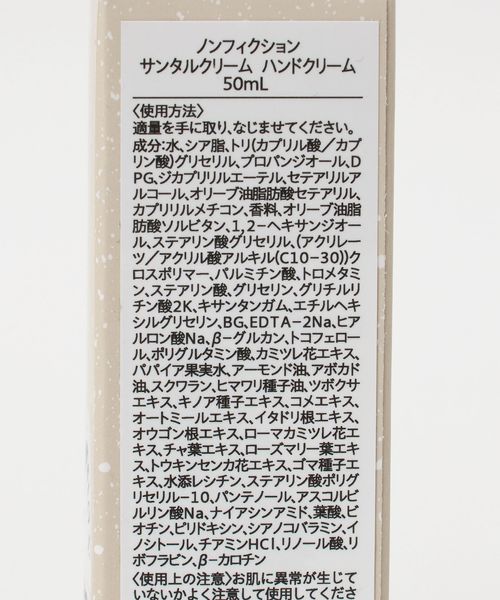 ノンフィクション
サンタルクリーム ハンドクリーム
50mL
〈使用方法〉
適量を手に取り、なじませてください。
成分:水、シア脂、トリ(カプリル酸/カプ
リン酸)グリセリル、プロパンジオール、D
PG、ジカプリリルエーテル、セテアリルア
ルコール、オリーブ油脂肪酸セテアリル、
カプリリルメチコン、香料、オリーブ油脂
肪酸ソルビタン、1,2-ヘキサンジオー
ル、ステアリン酸グリセリル、(アクリレー
ツ/アクリル酸アルキル(C10-30))ク
ロスポリマー、パルミチン酸、トロメタミ
ン、ステアリン酸、グリセリン、グリチルリ
チン酸2K、キサンタンガム、エチルヘキ
シルグリセリン、BG、EDTA-2Na、ヒア
ルロン酸Na、β-グルカン、トコフェロー
ル、ポリグルタミン酸、カミツレ花エキス、
パパイア果実水、アーモンド油、アボカド
油、スクワラン、ヒマワリ種子油、ツボクサ
エキス、キノア種子エキス、コメエキス、
オートミールエキス、イタドリ根エキス、
オウゴン根エキス、ローマカミツレ花エ
キス、チャ葉エキス、ローズマリー葉エキ
ス、トウキンセンカ花エキス、ゴマ種子エ
キス、水添レシチン、ステアリン酸ポリグ
リセリル-10、パンテノール、アスコルビ
ルリン酸Na、ナイアシンアミド、葉酸、ビ
オチン、ピリドキシン、シアノコバラミン、イ
ノシトール、チアミンHCl、リノール酸、リ
ボフラビン、β-カロチン
〈使用上の注意〉お肌に異常が生じて
いないかよく注意して使用してくださ